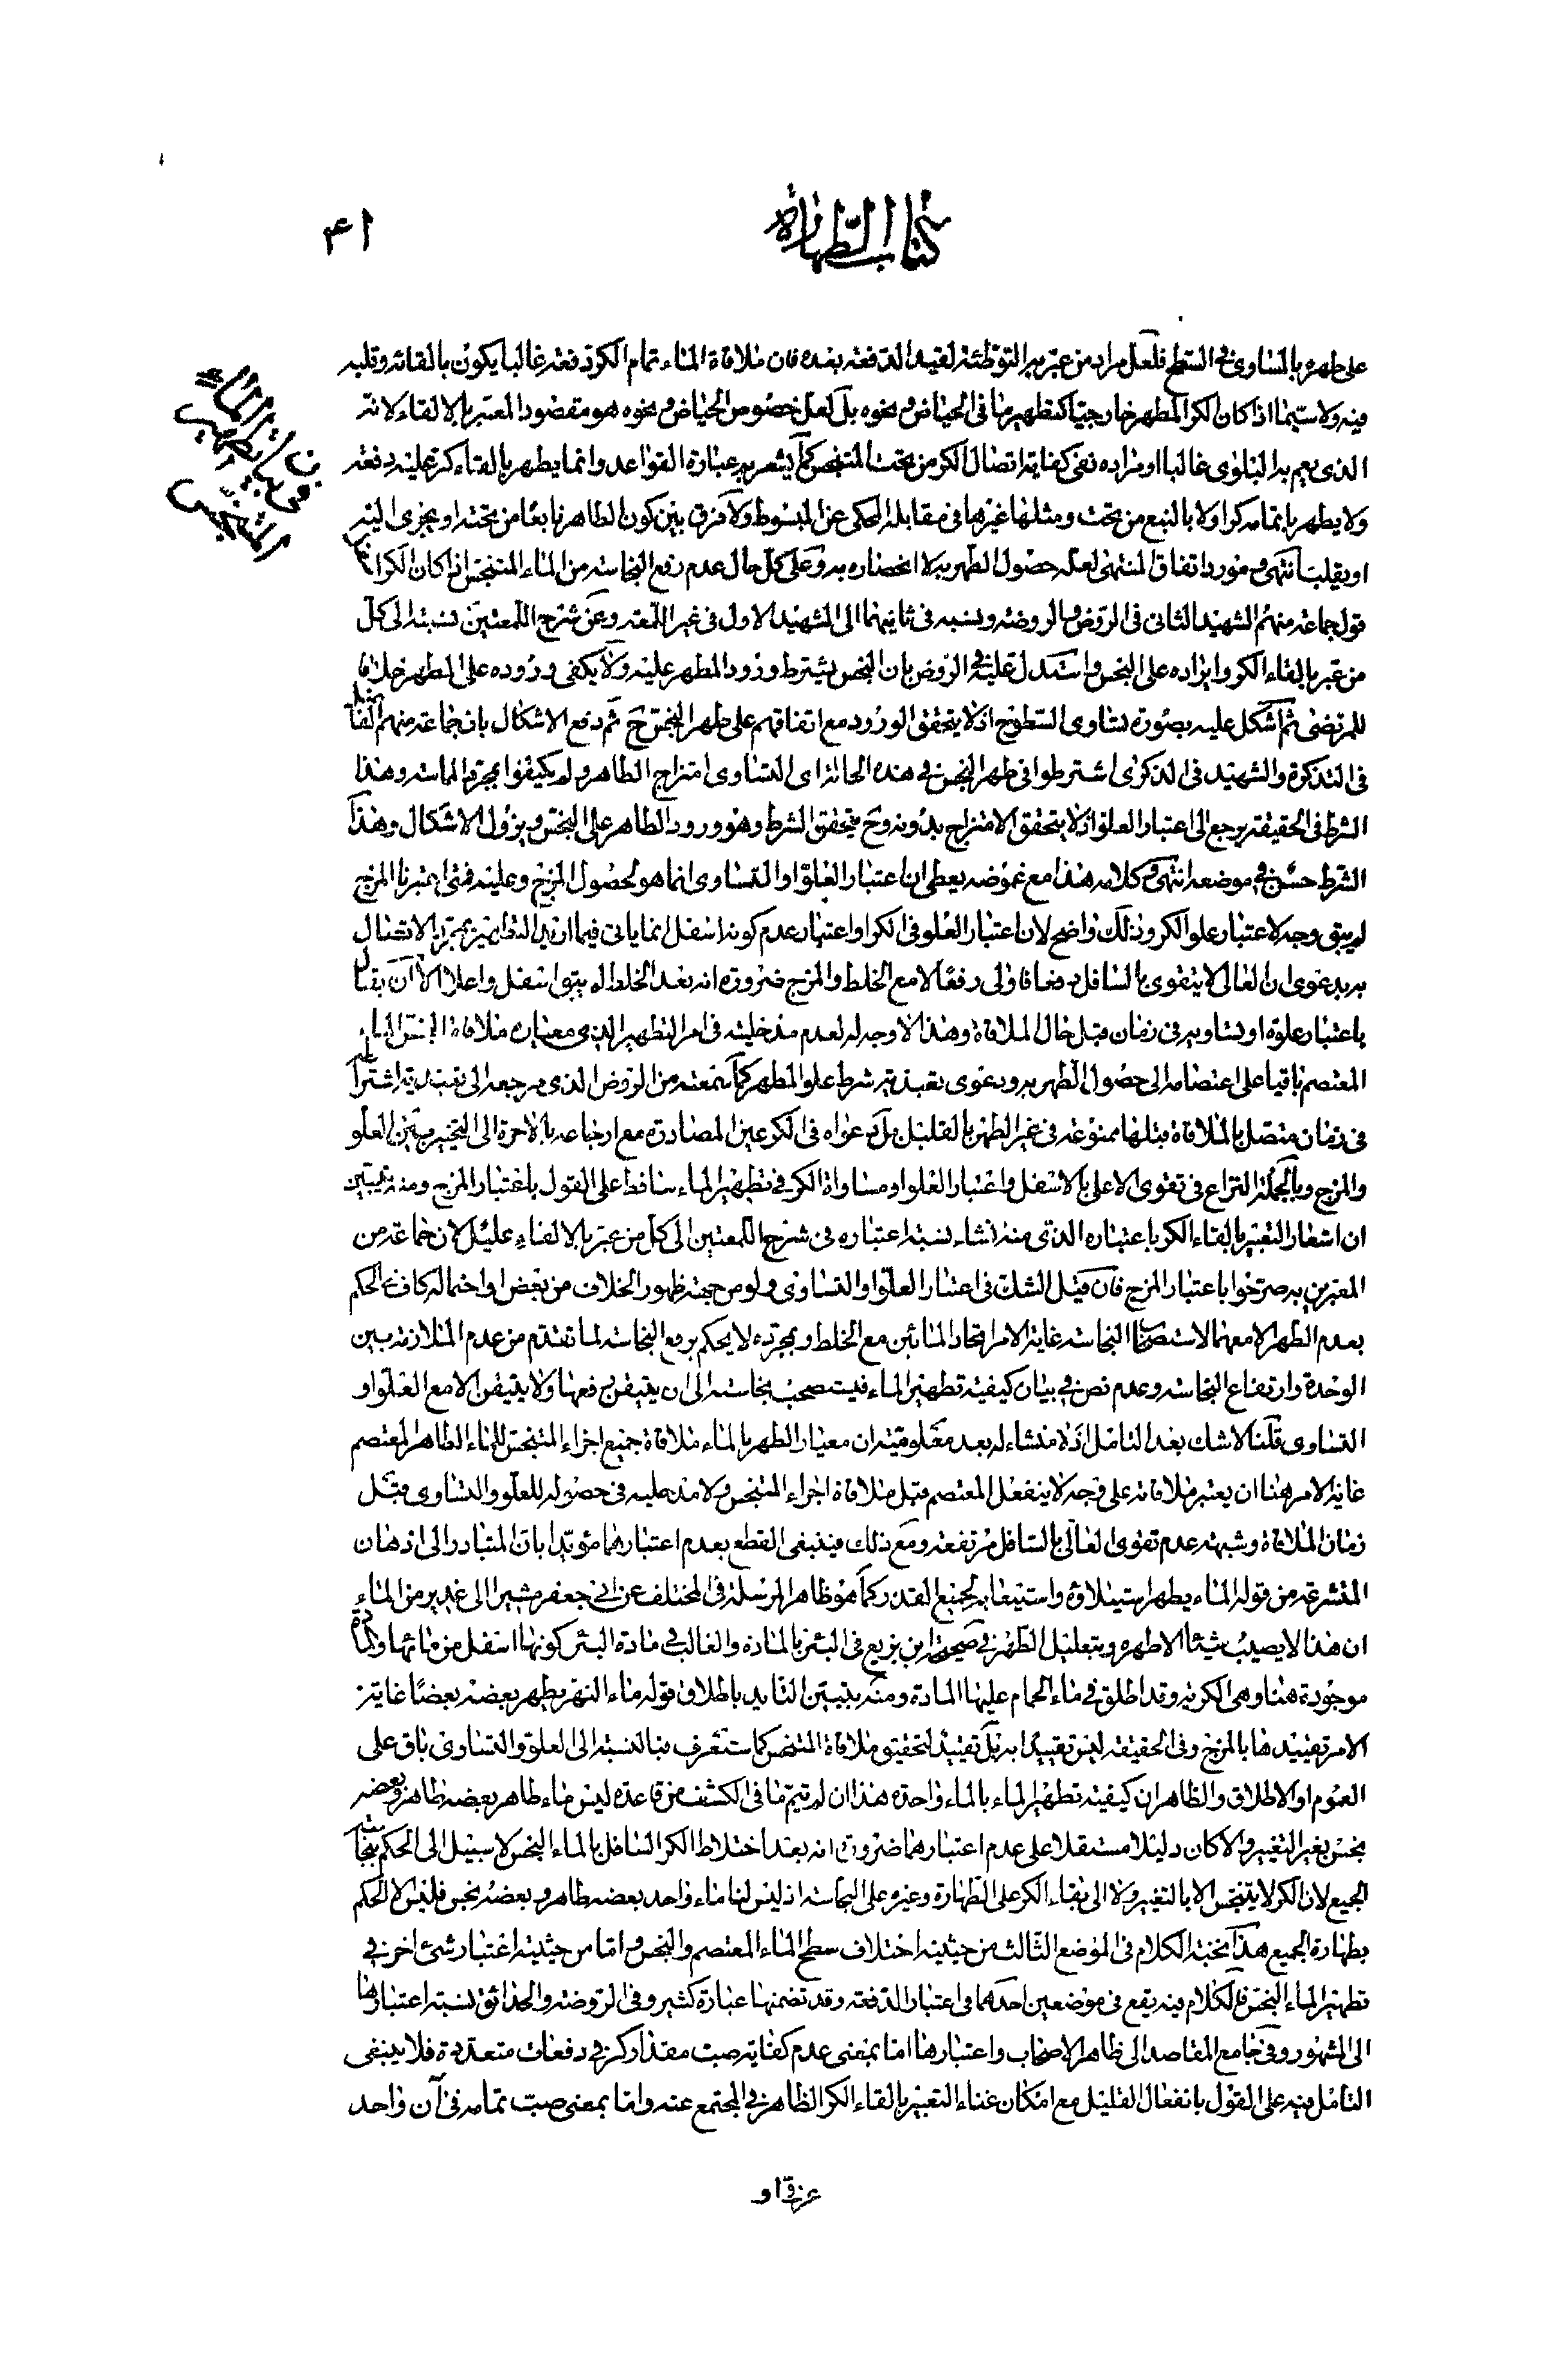 كتاب الطهارة
٤١
في بيان تطهير الماء المتنجس
على طهره بالمساوى في السطح فلعل مراد من عبر به التوطئة لقيد الدفعة بعده فان ملاقاة الماء تمام الكر دفعة غالبا يكون بالقائه وقلبه
فيه ولا سيما اذا كان الكر المطهر خارجيا كتطهير ما في الحياض ونحوه بل لعل خصوص الحياض ونحوه هو مقصود المعبر بالالقاء لانه
الذى يعم به البلوى غالبا او مراده نفى كفاية اتصال الكر من تحت المتنجس كما يشعر به عبارة القواعد وانما يطهر بالقاء كر عليه دفعة
ولا يطهر باتمامه كرا ولا بالنبع من تحت ومثلها غيرها في مقابلة المحكى عن المبسوط ولا فرق بين كون الطاهر نابعا من تحته او يجرى اليه
او يقلب انتهى ومورد اتفاق المنتهى لعله حصول الطهر به لا انحصاره به وعلى كل حال عدم رفع النجاسة من الماء المتنجس اذا كان الكر
قول جماعة منهم الشهيد الثانى في الروض والروضة ونسبه في ثانيهما الى الشهيد الاول في غير اللمعة وعن شرح اللمعتين نسبته الى كل
من عبر بالقاء الكر وايراده على النجس واستدل عليه في الروض بان النجس يشترط ورود المطهر عليه ولا يكفى وروده على المطهر خلافا
للمرتضى ثم اشكل عليه بصورة تساوى السطوح اذ لا يتحقق الورود مع اتفاقهم على طهر النجس ح ثم دفع الاشكال بان جماعة منهم الفاضل
في التذكرة والشهيد في الذكرى اشترطوا في طهر النجس في هذه الحالة اى التساوى امتزاج الطاهر ولم يكتفوا بمجرد المماسة وهذا
الشرط في الحقيقة يرجع الى اعتبار العلو اذ لا يتحقق الامتزاج بدونه وح يتحقق الشرط وهو ورود الطاهر على النجس ويزول الاشكال وهذا
الشرط حسن في موضعه انتهى وكلامه هذا مع غموضه يعطى ان اعتبار العلو او التساوى انما هو لحصول المزج وعليه فمتى اعتبرنا المزج
لم يبق وجه لاعتبار علو الكر وذلك واضح لان اعتبار العلو في الكر او اعتبار عدم كونه اسفل انما ياتى فيما اريد التطهير بمجرد الاتصال
به بدعوى ان العالى لا يتقوى بالسافل دفعا فاولى رفعا لا مع الخلط والمزج ضرورة انه بعد الخلط لم يبق اسفل واعلا الا ان يقال
باعتبار علوه او تساويه في زمان قبل حال الملاقاة وهذا لا وجه له لعدم مدخليته في امر التطهير الذى معياره ملاقاة النجس الماء
المعتصم باقيا على اعتصامه الى حصول الطهر به ودعوى تعبدية شرط علو المطهر كما سمعته من الروض الذى مرجعه الى تعبدية اشتراطه
في زمان متصل بالملاقاة قبلها ممنوعة في غير الطهر بالقليل بل دعواه في الكر عين المصادرة مع ارجاعه بالاخرة الى التخيير بين العلو
والمزج وبالجملة النزاع في تقوى الاعلى بالاسفل واعتبار العلو او مساواة الكر في تطهير الماء ساقط على القول باعتبار المزج ومنه يتبين
ان اشعار التعبير بالقاء الكر باعتباره الذى منه نشاء نسبة اعتباره في شرح اللمعتين الى كل من عبر بالالقاء عليل لان جماعة من
المعبرين به صرحوا باعتبار المزج فان قيل الشك في اعتبار العلو او التساوى ولو من جهة ظهور الخلاف من بعض او احتماله كاف في الحكم
بعدم الطهر الا معهما لاستصحاب النجاسة غاية الامر اتحاد المائين مع الخلط وبمجرده لا يحكم برفع النجاسة لما تقدم من عدم الملازمة بين
الوحدة وارتفاع النجاسة وعدم نص في بيان كيفية تطهير الماء فيستصحب نجاسته الى ان يتيقن رفعها ولا يتيقن الا مع العلو او
التساوى قلنا لا شك بعد التامل اذ لا منشاء له بعد معلومية ان معيار الطهر بالماء ملاقاة جميع اجزاء المتنجس للماء الطاهر المعتصم
غاية الامر هنا ان يعتبر ملاقاته على وجه لا ينفعل المعتصم قبل ملاقاة اجزاء المتنجس ولا مدخلية في حصوله للعلو والتساوى قبل
زمان الملاقاة وشبهة عدم تقوى العالى بالسافل مرتفعة ومع ذلك فينبغى القطع بعدم اعتبارهما مؤيدا بان المتبادر الى اذهان
المتشرعة من قوله الماء يطهر استيلاؤه واستيعابه لجميع القذر كما هو ظاهر المرسلة في المختلف عن ابى جعفر مشيرا الى غدير من الماء
ان هذا لا يصيب شيئا الا طهره وبتعليل الطهر في صحيحة ابن بزيع في البئر بالمادة والغالب في مادة البئر كونها اسفل من مائها والمادة
موجودة هنا وهى الكرية وقد اطلق في ماء الحمام عليها المادة ومنه يتبين التاييد باطلاق قوله ماء النهر يطهر بعضه بعضا غاية
الامر تقييدها بالمزج وفى الحقيقة ليس تقييدا به بل تقييد لتحقيق ملاقاة المتنجس كما ستعرف فبالنسبة الى العلو والتساوى باق على
العموم او الاطلاق والظاهر ان كيفية تطهير الماء بالماء واحدة هذا ان لم يتم ما في الكشف من قاعدة ليس ماء طاهر بعضه طاهر وبعضه
نجس بغير التغيير والا كان دليلا مستقلا على عدم اعتبارهما ضرورة انه بعد اختلاط الكر السافل بالماء النجس لا سبيل الى الحكم بنجاسة
الجميع لان الكر لا يتنجس الا بالتغير ولا الى بقاء الكر على الطهارة وغيره على النجاسة اذ ليس لنا ماء واحد بعضه طاهر وبعضه نجس فليس الا الحكم
بطهارة الجميع هذا نخبة الكلام في الموضع الثالث من حيثية اختلاف سطح الماء المعتصم والنجس واما من حيثية اعتبار شئ اخر في
تطهير الماء النجس فالكلام فيه يقع في موضعين احدهما في اعتبار الدفعة وقد تضمنها عبارة كثير وفى الروضة والحدائق نسبة اعتبارها
الى المشهور وفى جامع المقاصد الى ظاهر الاصحاب واعتبارها اما بمعنى عدم كفاية صب مقدار كر في دفعات متعددة فلا ينبغى
التامل فيه على القول بانفعال القليل مع امكان غناء التعبير بالقاء الكر الظاهر في المجتمع عنه واما بمعنى صب تمامه في آن واحد